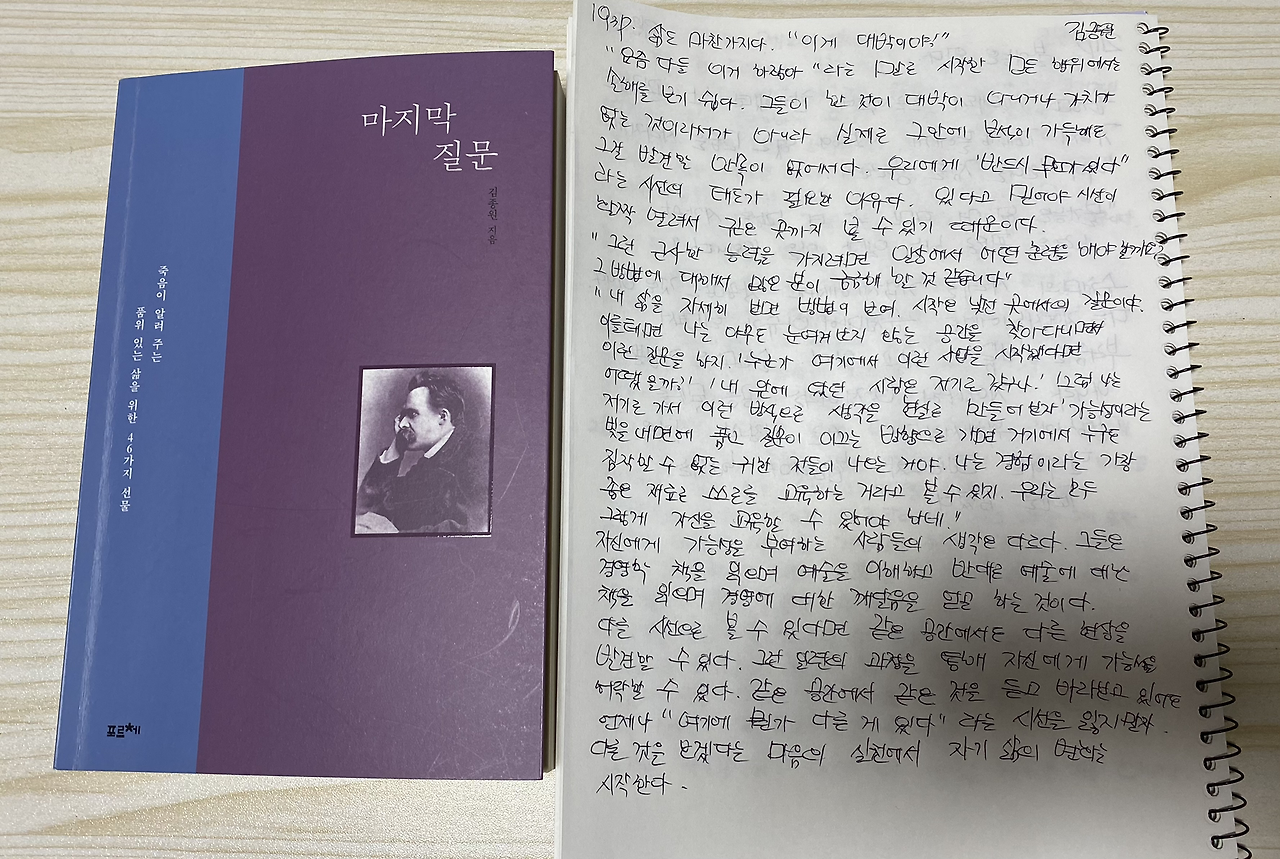 마지막
질문
김종원 지음
죽음이 알려 주는
품위 있는 삶을 위한 46가지 선물
포르체
193p. 삶도 마찬가지다. "이게 대박이야!" 김종원
"요즘 다들 이거 하잖아"라는 말로 시작한 모든 행위에서는
손해를 보기 쉽다. 그들이 한 것이 대박이 아니거나 가치가
없는 것이라서가 아니라 실제로 그안에 보석이 가득해도
그걸 발견할 안목이 없어서다. 우리에게 '반드시 무언가 있다"
라는 시선의 태도가 필요한 이유다. 있다고 믿어야 시선이
활짝 열려서 깊은 곳까지 볼 수 있기 때문이다.
"그런 근사한 능력을 가지려면 일상에서 어떤 훈련을 해야 할까요?
그 방법에 대해서 많은 분이 궁금해 할 것 같습니다"
"내 삶을 자세히 보면 방법이 보여. 시작은 낯선 곳에서의 질문이야.
이를테면 나는 아무도 눈여겨보지 않는 공간을 찾아다니면서
이런 질문을 하지. '누군가 여기에서 이런 사업을 시작했다면
어땠을까?' '내 안에 있던 사랑은 저기로 갔구나.' '그럼 나는
저기로 가서 이런 방식으로 생각을 현실로 만들어 보자' 가능성이라는
빛을 내면에 품고 질문이 이끄는 방향으로 가면 거기에서 누구도
짐작할 수 없는 귀한 것들이 나오는 거야. 나는 경험이라는 가장
좋은 재료로 스스로를 교육하는 거라고 볼 수 있지. 우리는 모두
그렇게 자신을 교육할 수 있어야 하네."
자신에게 가능성을 부여하는 사람들의 생각은 다르다. 그들은
경영학 책을 읽으며 예술을 이해하고 반대로 예술에 대한
책을 읽으며 경영에 대한 깨달음을 얻곤 하는 것이다.
다른 시선으로 볼 수 있다면 같은 공간에서도 다른 현장을
발견할 수 있다. 그런 일련의 과정을 통해 자신에게 가능성을
허락할 수 있다. 같은 공간에서 같은 것을 듣고 바라보고 있어도
언제나 "여기에 뭔가 다른 게 있다" 라는 시선을 잃지말자.
다른 것을 보겠다는 마음의 실천에서 자기 삶의 변화는
시작한다.